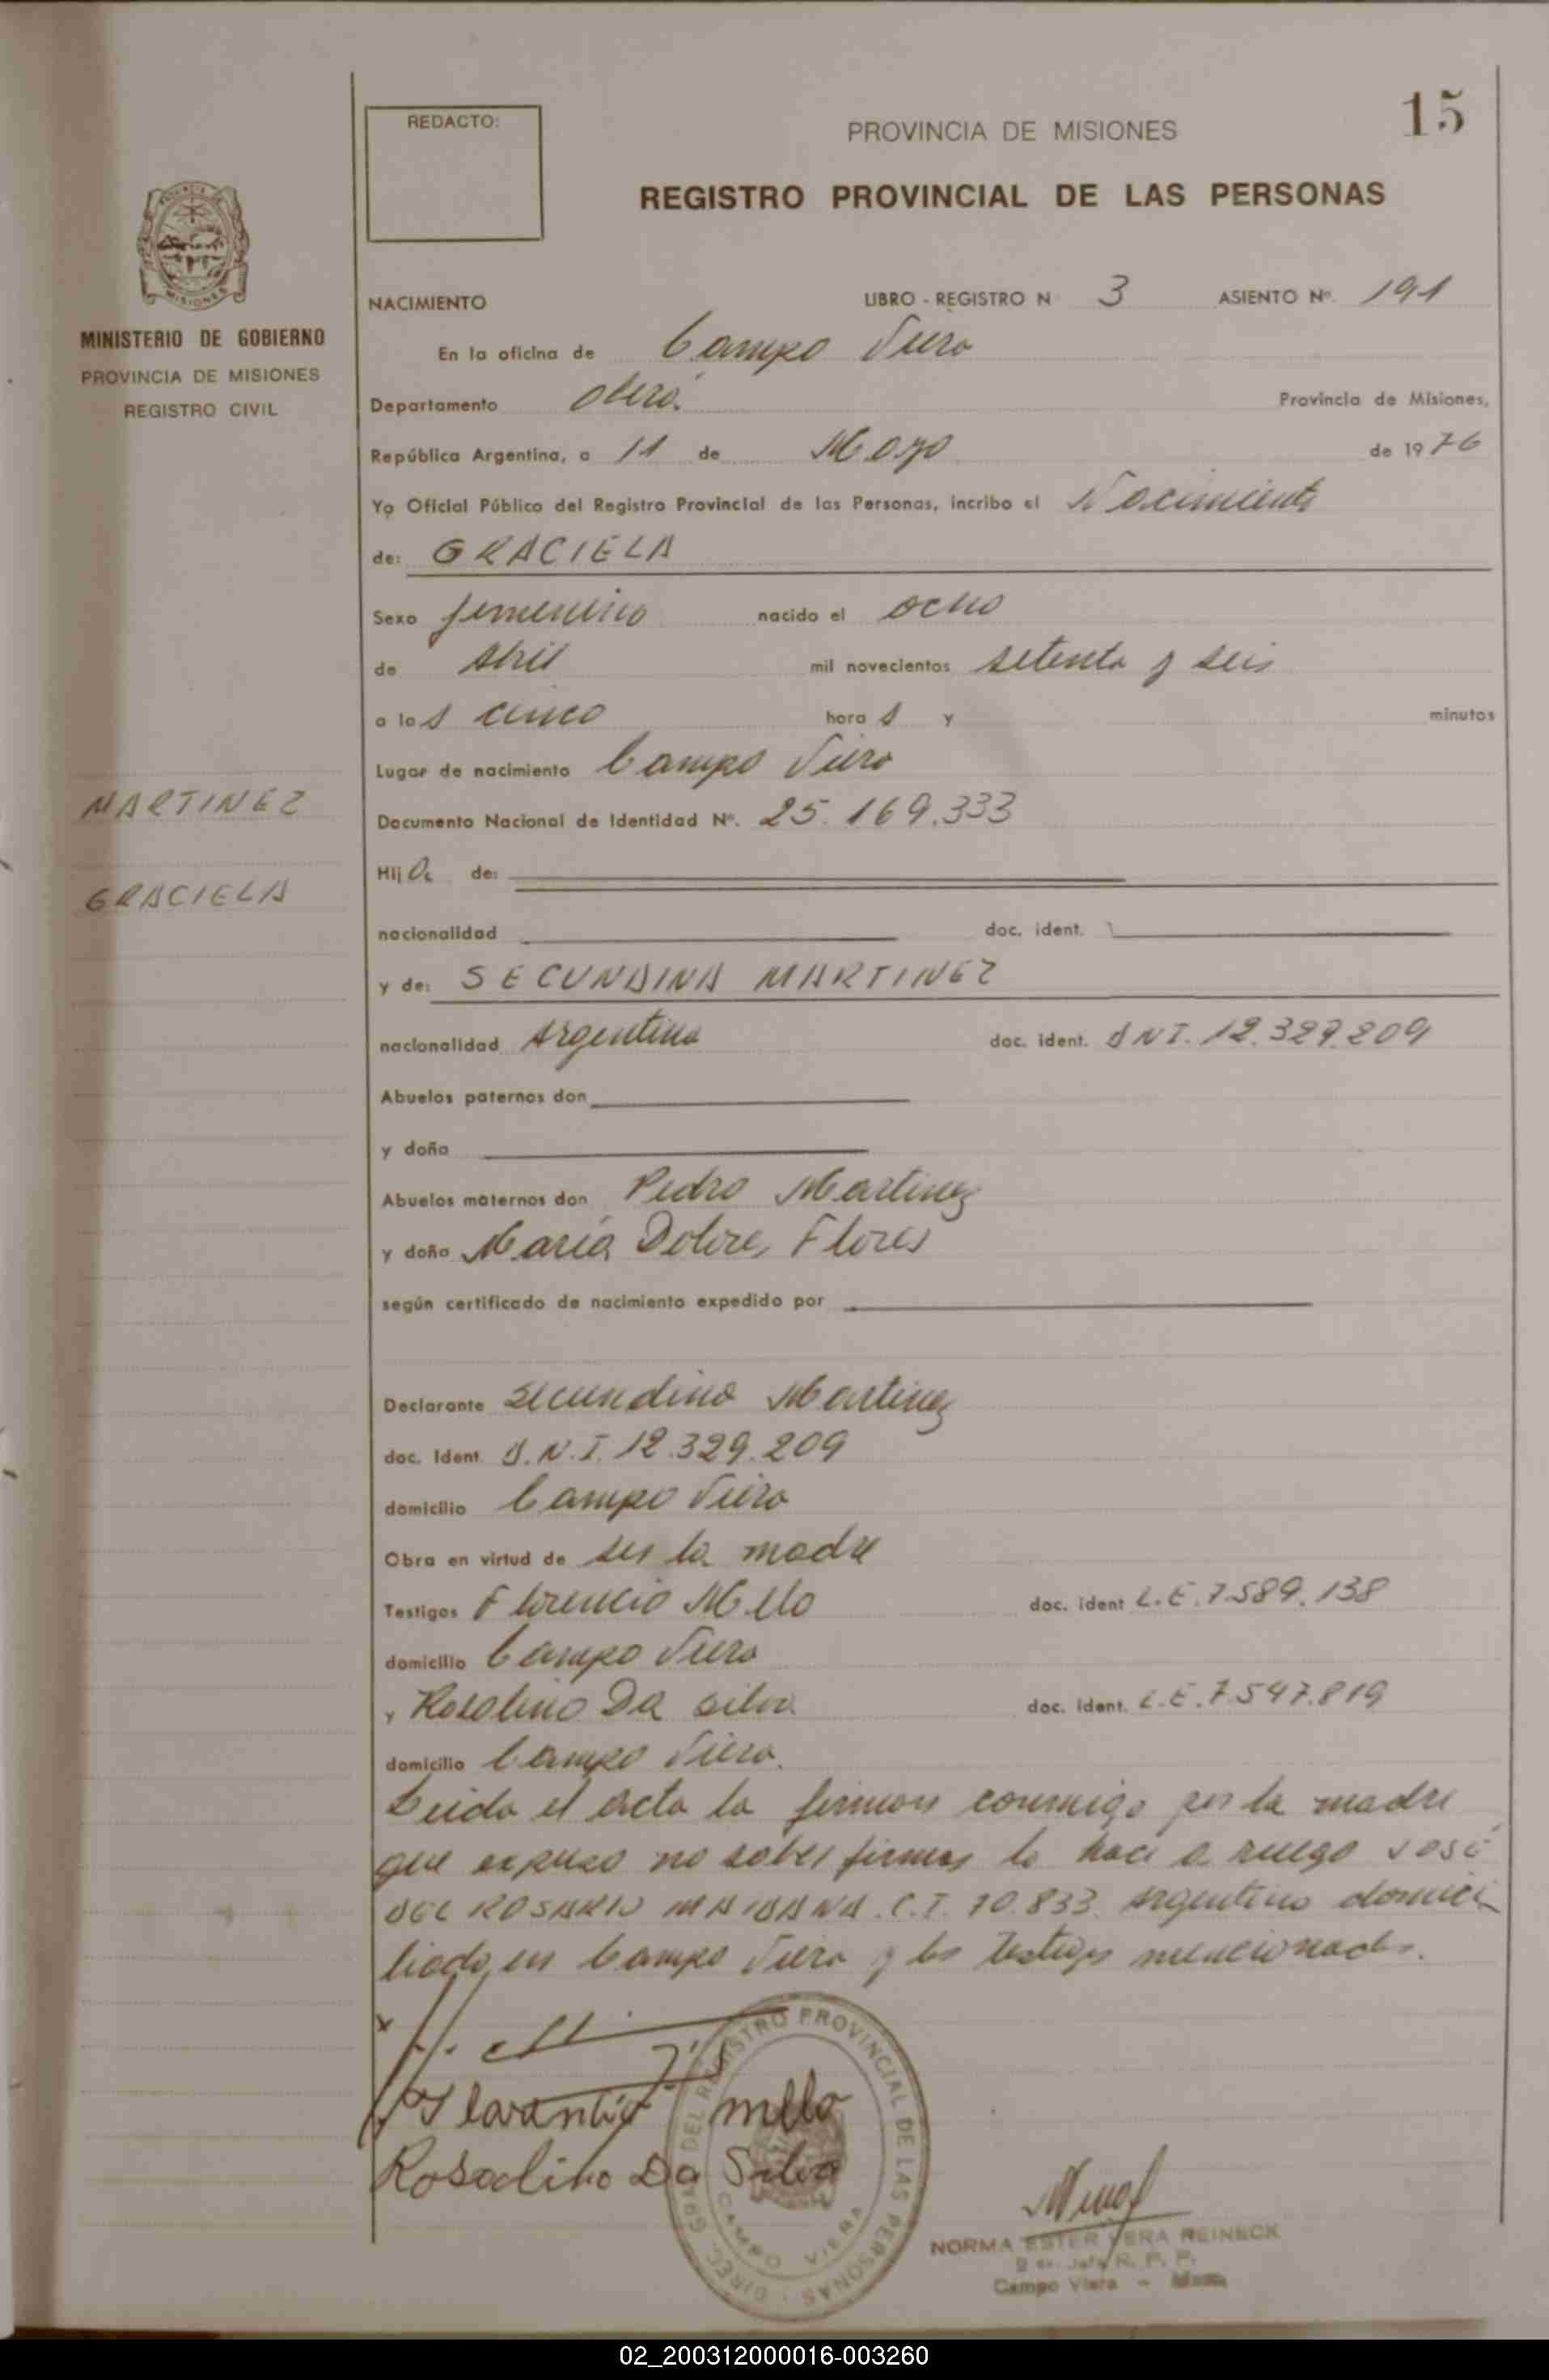 15
REDACTO:
PROVINCIA DE MISIONES
REGISTRO PROVINCIAL DE LAS PERSONAS
MISIONES
MINISTERIO DE GOBIERNO
PROVINCIA DE MISIONES
REGISTRO CIVIL
NACIMIENTO LIBRO - REGISTRO N 3 ASIENTO Nº. 191
En la oficina de Campo Viera
Departamento Oberá. Provincia de Misiones,
República Argentina, a 11 de Mayo de 1976
Yo Oficial Público del Registro Provincial de las Personas, incribo el Nacimiento
de: GRACIELA
Sexo femenino nacido el ocho
de Abril mil novecientos setenta y seis
a las cinco horas y minutos
Lugar de nacimiento Campo Viera
MARTINEZ
Documento Nacional de Identidad Nº. 25.169.333
Hija de:
GRACIELA
nacionalidad doc. ident.
y de: SECUNDINA MARTINEZ
nacionalidad Argentina doc. ident. DNI. 12.329.209
Abuelos paternos don
y doña
Abuelos maternos don Pedro Martinez
y doña María Dolores Flores
según certificado de nacimiento expedido por
Declarante Secundina Martinez
doc. Ident. D.N.I. 12.329.209
domicilio Campo Viera
Obra en virtud de ser la madre
Testigos Florencio Mello doc. ident L.E. 7589.138
domicilio Campo Viera
y Rosalino Da Silva doc. ident. L.E. 7.547.819
domicilio Campo Viera.
Leida el acta la firman conmigo por la madre
que expuso no saber firmar lo hace a ruego JOSÉ
DEL ROSARIO MAIDANA C.I. 70.833. argentino domici
liado en Campo Viera y los testigos mencionados.
mello
Rosalino Da Silva
DIREC. GRAL DEL REGISTRO PROVINCIAL DE LAS PERSONAS
CAMPO VIERA
NORMA ESTER VERA REINECK
Jefe R. P. P.
Campo Viera - Mnes.
02_200312000016-003260